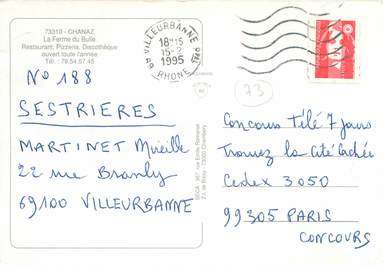 73310 - CHANAZ
La Ferme du Bulle
Restaurant, Pizzeria, Discothèque
ouvert toute l'année
Tél. : 79.54.57.45
69 VILLEURBANNE PPAL
18H15
15-2
1995
RHONE
73
N° 188
SESTRIERES
MARTINET Mireille
22 rue Branly
69100 VILLEURBANNE
Concours Télé 7 Jours
Trouvez la Cité Cachée
Cedex 3050
99305 PARIS
CONCOURS